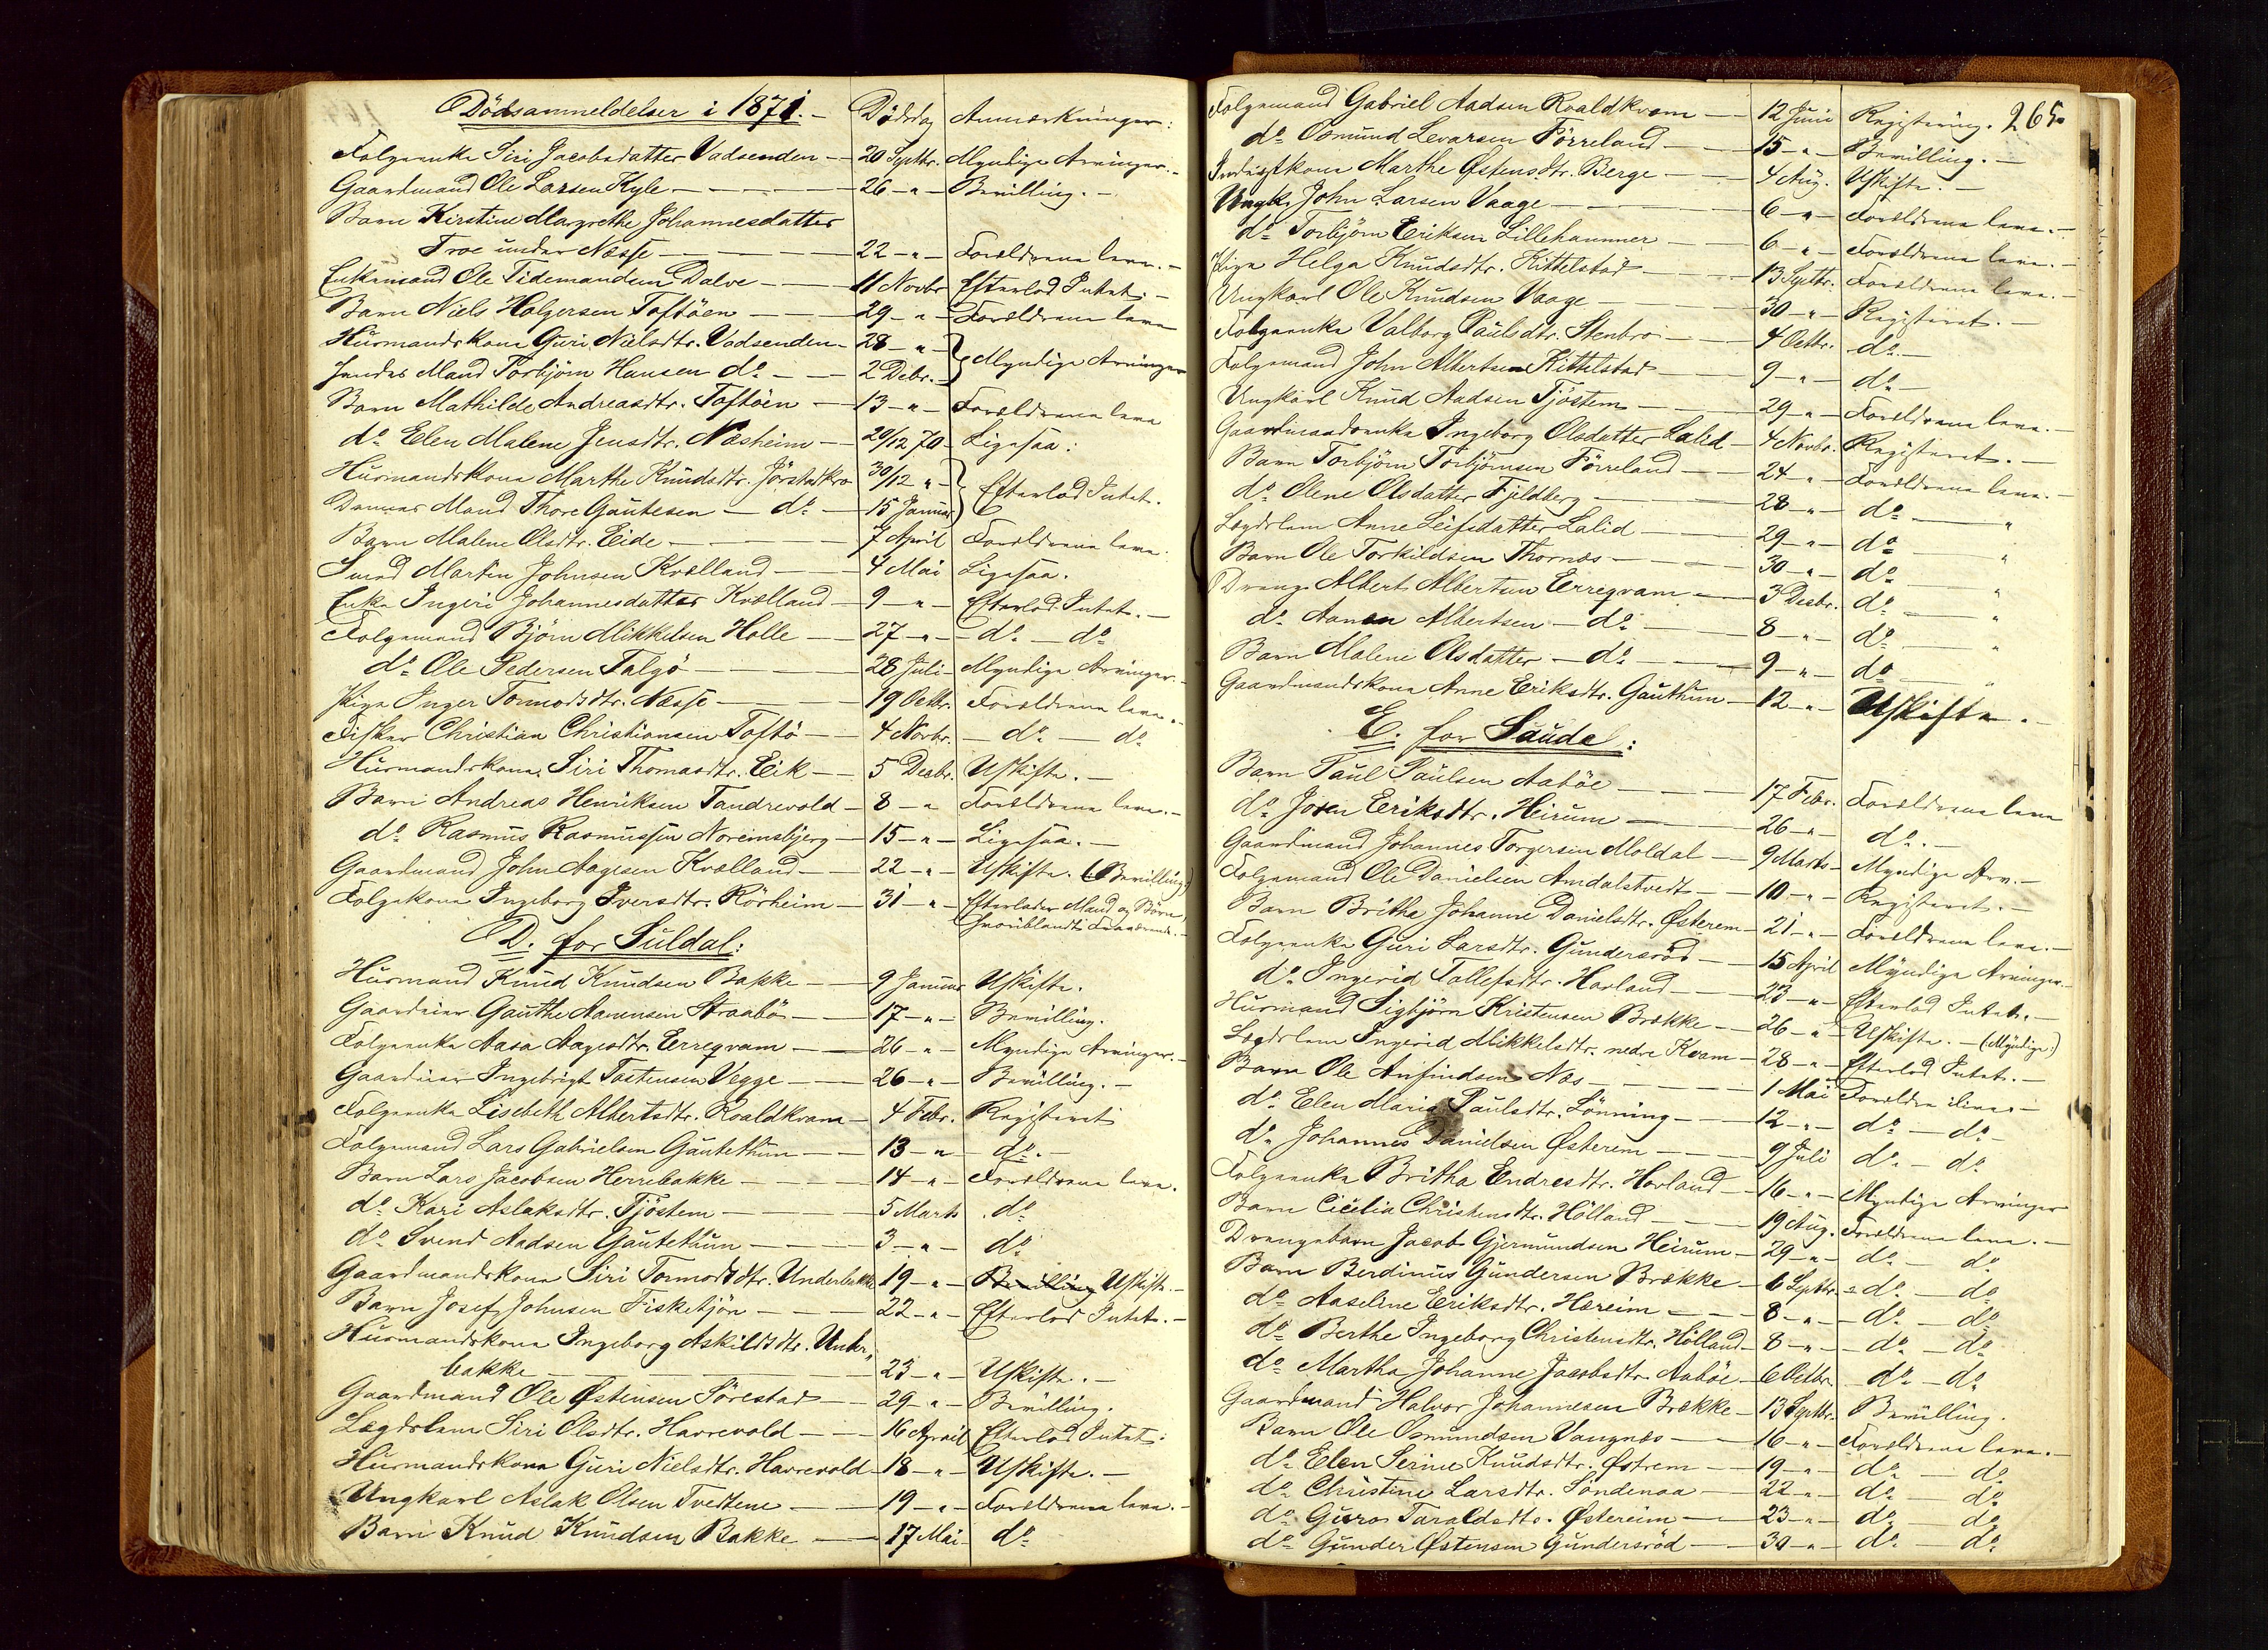 Dödsanmeldelser i 1871. — Dödsdag Anmærkninger:
Folgeenke Siri Jacobsdatter Vadsenden — 20 Septbr. Myndige Arvinger. —
Gaardmand Ole Larsen Hyle — 26 — " — Bevilling. —
Barn Kirstine Margrethe Johannesdatter
Troe under Næsse — 22 — " — Forældrene leve. —
Enkemand Ole Tidemandsen Dalve — 11 Novbr Efterlod Intet. —
Barn Niels Holgersen Toftöen — 29 — " — Forældrene leve
Husmandskone Guri Nielsdtr. Vadsenden — 28 — " — } Myndige Arvinger
Hendes Mand Torbjörn Hansen do — 2 Debr. —
Barn Mathilde Andreasdtr. Toftöen — 13 — " — Forældrene leve
do Elen Malene Jensdtr. Næsheim — 29/12 70 Ligesaa:
Husmandskone Marthe Knudsdtr. Jörstadkro 30/12 " } Efterlod Intet.
Dennes Mand Thore Gautesen — do — 15 Januar
Barn Malene Olsdtr. Eide — 7 April Forældrene leve.
Smed Martin Johnsen Kvælland — 4 Mai Ligesaa.
Enke Ingeri Johannesdatter Kvælland — 9 — " — Efterlod Intet. —
Folgemand Björn Mikkelsen Halle — 27 — " — do — do
do Ole Pedersen Talgö — 28 Juli — Myndige Arvinger. —
Pige Inger Tormodsdtr. Næsse — 19 Octbr. Forældrene leve. —
Fisker Christian Christiansen Toftö — 4 Novbr. — do — do
Husmandskone Siri Thomasdtr. Eik — 5 Decbr. Uskifte. —
Barn Andreas Henriksen Tandrevold — 8 — " Forældrene leve. —
do Rasmus Rasmussen Noreimsbjerg — 15 — " — Ligesaa. —
Gaardmand John Aagesen Kvælland — 22 — " — Uskifte. (Bevilling:)
Folgekone Ingeborg Iversdtr. Rörheim — 31 — " — Efterlader Mand og Börn,
hvoriblandt Fraværende. —
D. for Suldal:
Husmand Knud Knudsen Bakke — 9 Januar Uskifte.
Gaardeier Gauthe Aamensen Straabö — 17 — " — Bevilling.
Folgeenke Aasa Aagesdtr. Erreqvam — 26 — " — Myndige Arvinger. —
Gaardeier Ingebrigt Tostensen Vegge — 26 — " — Bevilling. —
Folgeenke Lisebeth Albertsdtr. Roaldkvam — 4 Febr. Registeret
Folgemand Lars Gabrielsen Gautethun — 13 — " — do. —
Barn Lars Jacobsen Herrebakke — 14 — " — Forældrene leve.
do Kari Aslaksdtr. Tjöstem — 5 Marts do
do Svend Aadsen Gautethun — 3 — " — do
Gaardmandskone Siri Tormodsdtr. Underbakke 19 — " — Bevilling Uskifte. —
Barn Josef Johnsen Fisketjön — 22 — " — Efterlod Intet. —
Husmandskone Ingeborg Askildsdtr. Under,
bakke — 23 — " — Uskifte. —
Gaardmand Ole Østensen Sörestad — 29 — " — Bevilling.
Lægdslem Siri Olsdtr. Havrevold — 16 April Efterlod Intet.
Husmandskone Guri Nielsdtr. Havrevold — 18 — " — Uskifte. —
Ungkarl Aslak Olsen Tvedtene — 19 — " — Forældrene leve. —
Barn Knud Knudsen Bakke — 17 Mai — do
265.
Folgemand Gabriel Aadsen Roaldkvam — 12 Juni Registering.
do Osmund Levarsen Förreland — 15 — " — Bevilling. —
Inderstkone Marthe Østensdtr. Berge — 4 Aug. Uskifte. —
Ungk. John Larsen Vaage — 6 — " — Forældrene leve. —
do Torbjörn Eriksen Lillehammer — 6 — " — Forældrene leve. —
Pige Helga Knudsdtr. Kittelstad — 13 Septbr. Forældrene leve. —
Ungkarl Ole Knudsen Vaage — 30 — " — Registeret. —
Folgeenke Valborg Paulsdtr. Stenbro — 4 Octbr. do —
Folgemand John Albertsen Kittelstad — 9 — " — do —
Ungkarl Knud Aadsen Tjöstem — 29 — " — Forældrene leve. —
Gaardmandsenke Ingeborg Olsdatter Lalid — 4 Novbr. Registeret. —
Barn Torbjörn Torbjörnsen Förreland — 24 — " — Forældrene leve. —
do Olene Olsdatter Fjeldberg — 28 — " — do — "
Lægdslem Anne Leifsdatter Lalid — 29 — " — do — "
Barn Ole Torkildsen Thornæs — 30 — " — do — "
Dreng Albert Albertsen Erreqvam — 3 Decbr. do — "
do Aanen Albertsen — do — 8 — " — do — "
Barn Malene Olsdatter — do — 9 — " — do — "
Gaardmandskone Anne Eriksdtr. Gauthun — 12 — " — Uskifte. —
E. for Saude:
Barn Paul Paulsen Aaböe — 17 Febr. Forældrene leve
do Josen Eriksdtr. Heirum — 26 — " — do. —
Gaardmand Johannes Torgersen Moldal — 9 Marts — Myndige Arv. —
Folgemand Ole Danielsen Amdalstvedt — 10 — " — Registeret. —
Barn Britha Johanne Danielsdtr. Østerem — 21 — " — Forældrene leve. —
Folgeenke Guri Larsdtr. Gundersröd — 15 April Myndige Arvinger. —
do Ingerid Tollefsdtr. Havland — 23 — " — Efterlod Intet. —
Husmand Sigbjörn Kristensen Brække — 26 — " — Uskifte. — (Myndige:)
Lægdslem Ingerid Mikkelsdtr. nedre Kvam — 28 — " — Efterlod Intet. —
Barn Ole Anfindsen Næs — 1 Mai Forældre live —
do Elen Maria Paulsdtr. Lönning — 12 — " — do — do —
do Johannes Danielsen Østerem — 9 Juli do — do
Folgeenke Britha Endresdtr. Hovland — 16 — " — Myndige Arvinger
Barn Cicilia Christensdtr. Hölland — 19 Aug. Forældrene leve. —
Drengebarn Jacob Gjermundsen Heirum — 29 — " — do — do
Barn Berdinus Gundersen Brække — 6 Septbr. — do — do
do Aaseline Eriksdtr. Hereim — 8 — " — do — do
do Berthe Ingeborg Christensdtr. Hölland — 8 — " — do — do
do Martha Johanne Jacobsdtr. Aaböe — 6 Octbr. do — do
Gaardmand Halvor Johannesen Brække — 13 Septbr. Bevilling.
Barn Ole Osmundsen Vangnæs — 16 — " — Forældrene leve. —
do Elen Serine Knudsdtr. Østrem — 19 — " — do — do
do Christine Larsdtr. Söndenaa — 22 — " — do — do
do Guro Taraldsdtr. Østereim — 23 — " — do — do
do Gunder Østensen Gundersröd — 30 — " — do — do